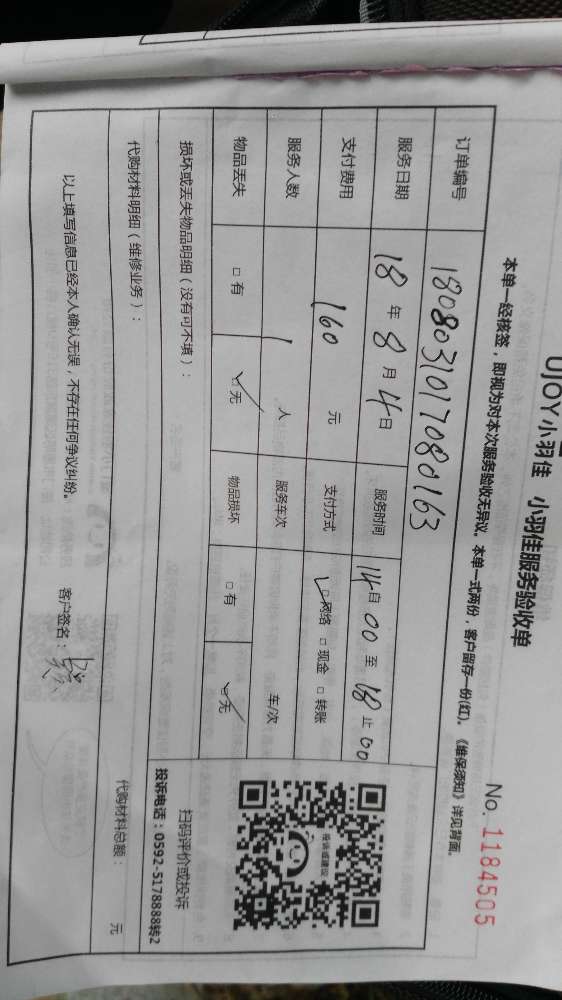 UJOY小羽佳 小羽佳服务验收单
No. 1184505
本单一经核签，即视为对本次服务验收无异议。本单一式两份，客户留存一份(红)。《维保须知》详见背面。
订单编号 1808031017080163
服务日期 18年8月4日 服务时间 14:00至18止00
支付费用 160元 支付方式 ☑网络 □现金 □转账
服务人数 1人 服务车次 车/次
物品丢失 □有 ☑无 物品损坏 □有 ☑无
损坏或丢失物品明细（没有可不填）：
扫码评价或投诉
投诉电话：0592-5178888转2
代购材料明细（维修业务）：
代购材料总额： 元
以上填写信息已经本人确认无误，不存在任何争议纠纷。 客户签名：